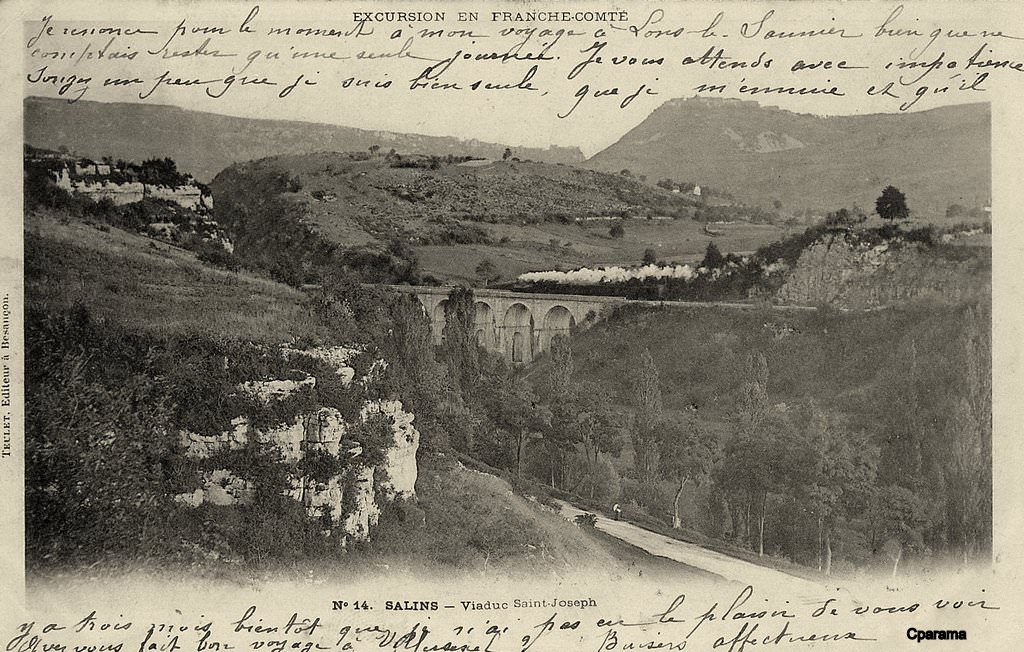 EXCURSION EN FRANCHE-COMTÉ
Je renonce pour le moment à mon voyage à Lons-le-Saunier bien que ne
comptais rester qu'une seule journée. Je vous attends avec impatience
Songez un peu que je suis bien seule, que je m'ennuie et qu'il
TEULET, Editeur à Besançon.
N° 14. SALINS – Viaduc Saint-Joseph
y a trois mois bientôt que je n'ai pas eu le plaisir de vous voir
Avez vous fait bon voyage à Baisers affectueux
Cparama